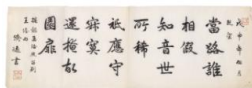 當路誰
相假
知音世
所稀
祇應守
寂寞
還掩故
園扉
孟浩然留別